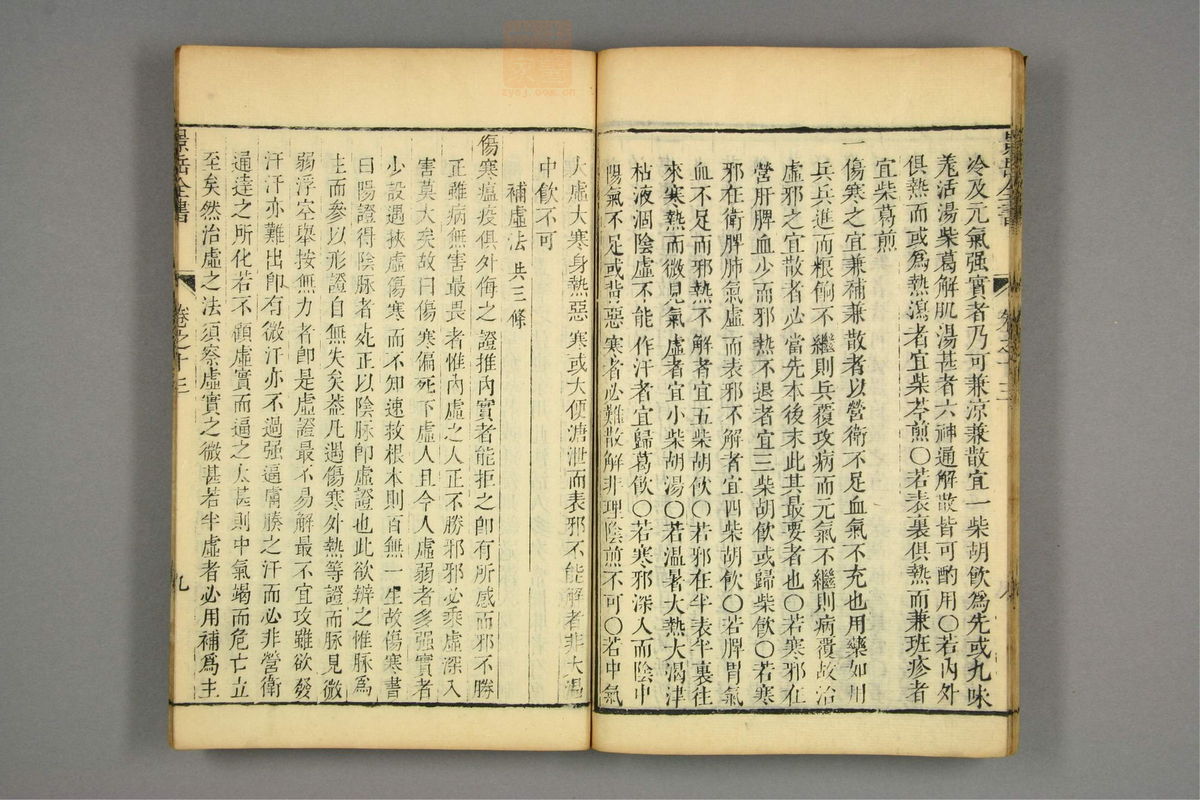 冷及元氣强實者乃可兼凉兼散宜一柴胡飲爲先或九味
羗活湯柴葛解肌湯甚者六神通解散皆可酌用○若內外
俱熱而或爲熱瀉者宜柴芩煎○若表裏俱熱而兼班疹者
宜柴葛煎
一傷寒之宜兼補兼散者以營衛不足血氣不充也用藥如用
兵兵進而粮餉不繼則兵覆攻病而元氣不繼則病覆故治
虛邪之宜散者必當先本後末此其最要者也○若寒邪在
營肝脾血少而邪熱不退者宜三柴胡飲或歸柴飲○若寒
邪在衛脾肺氣虛而表邪不解者宜四柴胡飲○若脾胃氣
血不足而邪熱不解者宜五柴胡飲○若邪在半表半裏往
來寒熱而微見氣虛者宜小柴胡湯○若温暑大熱大渴津
枯液涸陰虛不能作汗者宜歸葛飲○若寒邪深入而陰中
陽氣不足或背惡寒者必難散解非理陰煎不可○若中氣
景岳全書
卷之十三
大虛大寒身熱惡寒或大便溏泄而表邪不能解者非大温
中飲不可
補虛法 共三條
傷寒瘟疫俱外侮之證推內實者能拒之卽有所感而邪不勝
正雖病無害最畏者惟內虛之人正不勝邪邪必乘虛深入
害莫大矣故曰傷寒偏死下虛人且今人虛弱者多强實者
少設遇挾虛傷寒而不知速救根本則百無一生故傷寒書
曰陽證得陰脉者死正以陰脉卽虛證也此欲辯之惟脉爲
主而參以形證自無失矣葢凡遇傷寒外熱等證而脉見微
弱浮空舉按無力者卽是虛證最不易解最不宜攻雖欲發
汗汗亦難出卽有微汗亦不過强逼膚腠之汗而必非營衛
通達之所化若不顧虛實而逼之太甚則中氣竭而危亡立
至矣然治虛之法須察虛實之微甚若半虛者必用補爲主
景岳全書
卷之十三
九